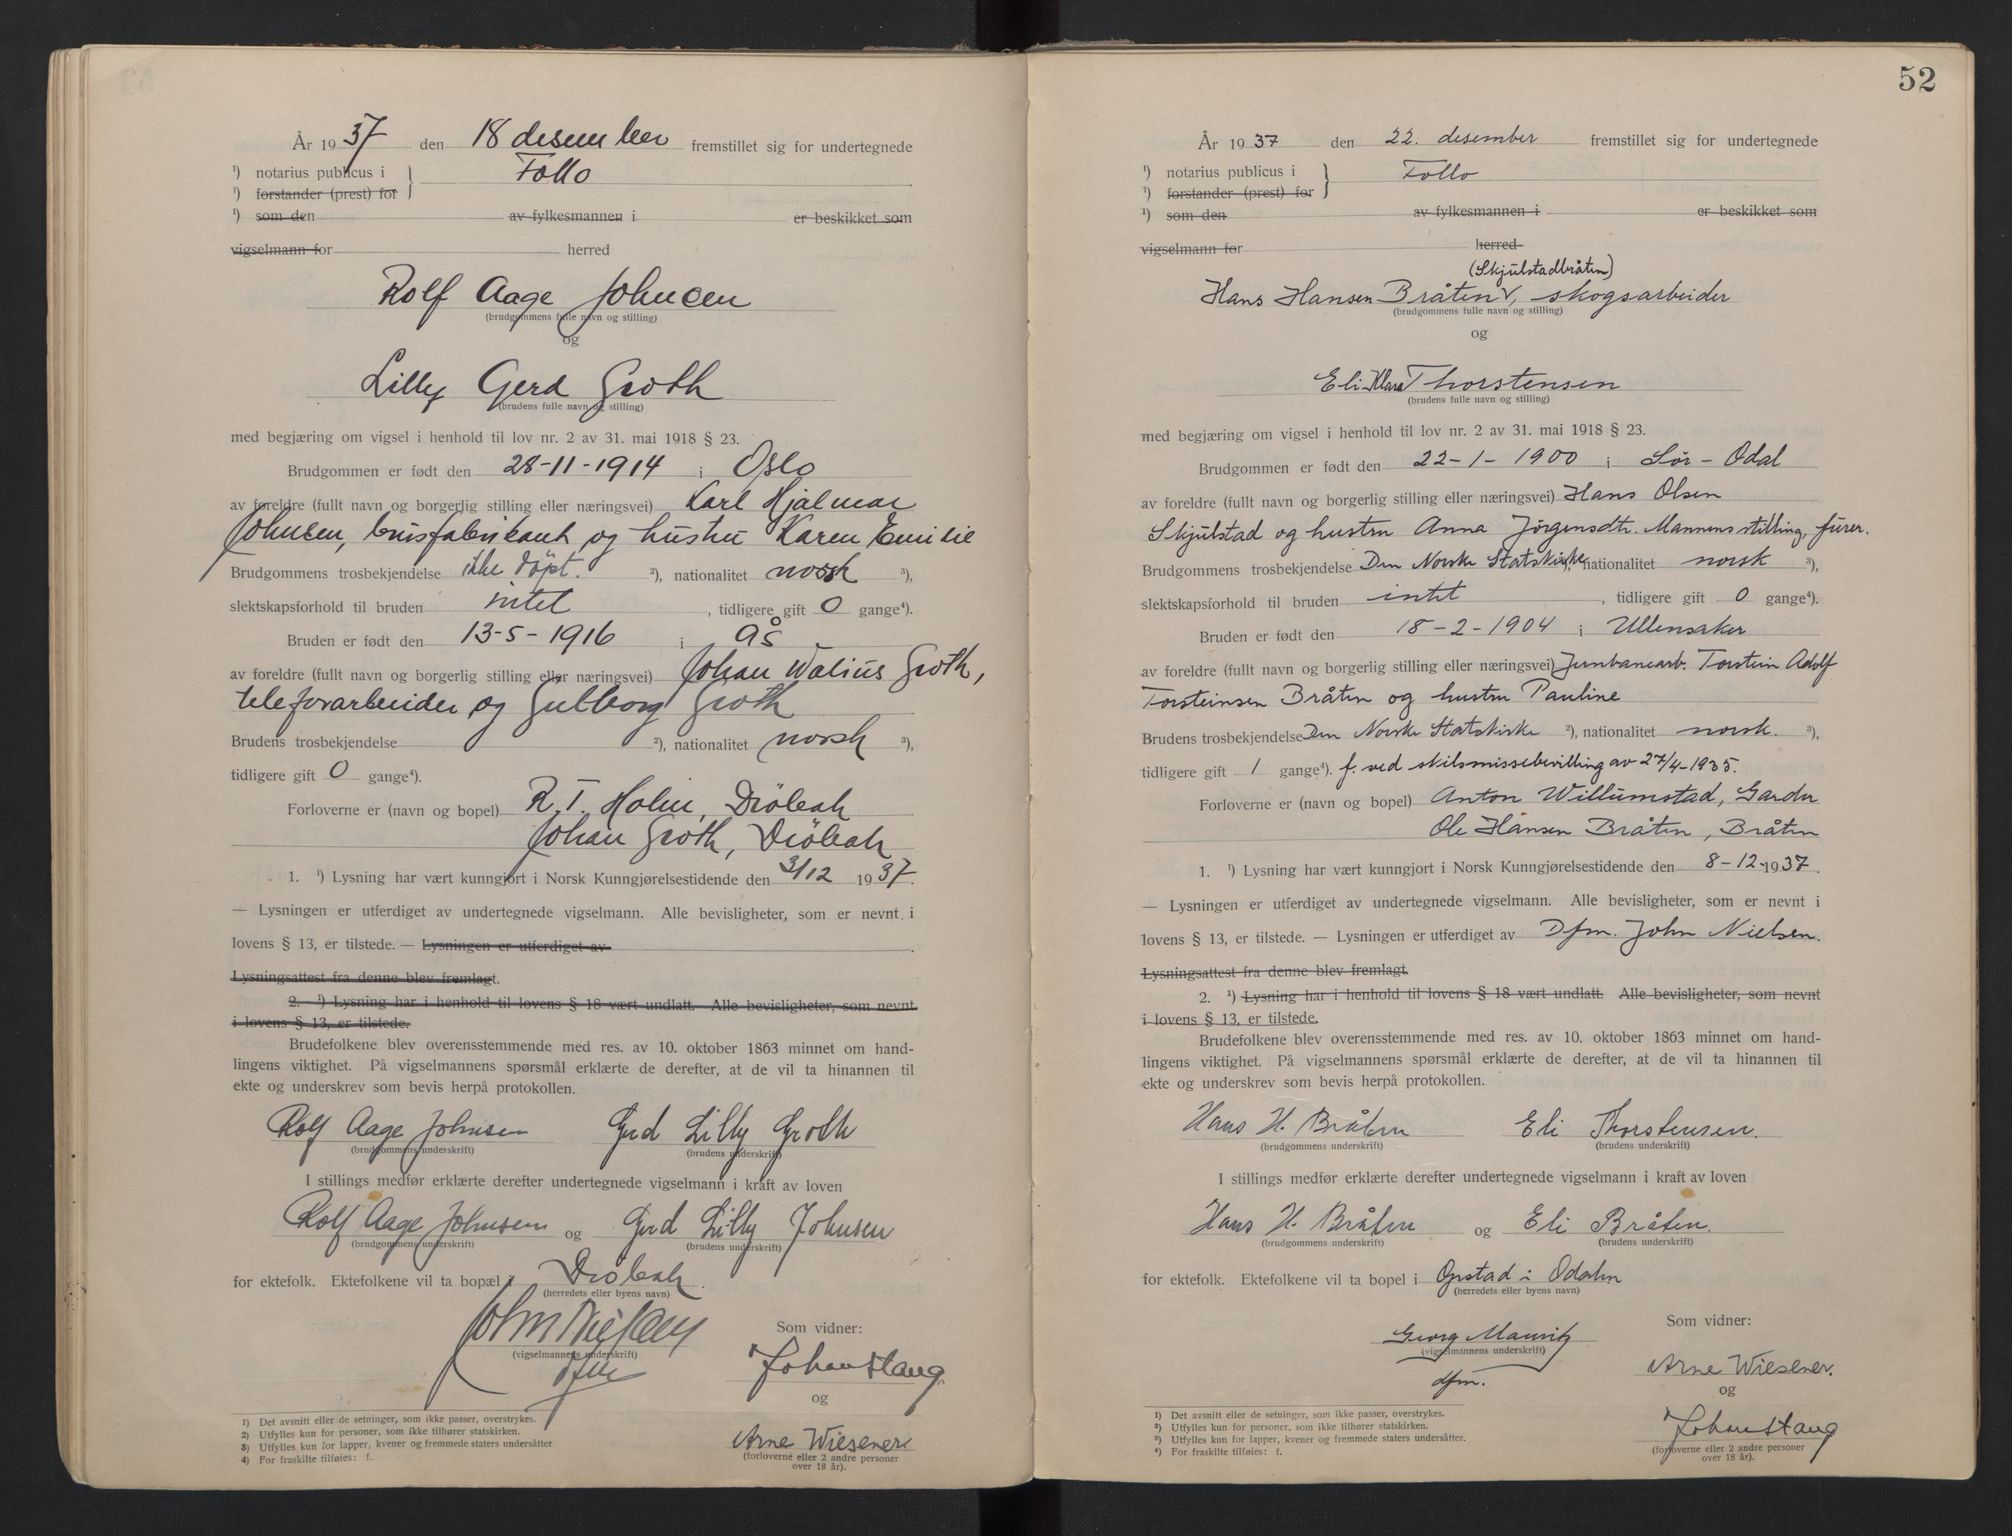 År 1937 den 18 desember fremstillet sig for undertegnede
¹) notarius publicus i } Follo
¹) forstander (prest) for
¹) som den av fylkesmannen i er beskikket som
vigselmann for herred
Rolf Aage Johnsen
(brudgommens fulle navn og stilling)
og
Lilly Gerd Groth
(brudens fulle navn og stilling)
med begjæring om vigsel i henhold til lov nr. 2 av 31. mai 1918 § 23.
Brudgommen er født den 28-11-1914 i Oslo
av foreldre (fullt navn og borgerlig stilling eller næringsvei) Karl Hjalmar
Johnsen, brusfabrikant og hustru Karen Emilie
Brudgommens trosbekjendelse ikke döpt. ²), nationalitet norsk ³),
slektskapsforhold til bruden intet, tidligere gift 0 gange⁴).
Bruden er født den 13-5-1916 i Ås
av foreldre (fullt navn og borgerlig stilling eller næringsvei) Johan Walius Groth,
telefonarbeider og Gulborg Groth
Brudens trosbekjendelse ²), nationalitet norsk ³),
tidligere gift 0 gange⁴).
Forloverne er (navn og bopel) R. T. Holm, Dröbak
Johan Groth, Dröbak
1. ¹) Lysning har vært kunngjort i Norsk Kunngjørelsestidende den 3/12 1937.
— Lysningen er utferdiget av undertegnede vigselmann. Alle bevisligheter, som er nevnt i
lovens § 13, er tilstede. — Lysningen er utferdiget av
Lysningsattest fra denne blev fremlagt.
2. ¹) Lysning har i henhold til lovens § 18 vært undlatt. Alle bevisligheter, som nevnt
i lovens § 13, er tilstede.
Brudefolkene blev overensstemmende med res. av 10. oktober 1863 minnet om hand-
lingens viktighet. På vigselmannens spørsmål erklærte de derefter, at de vil ta hinannen til
ekte og underskrev som bevis herpå protokollen.
Rolf Aage Johnsen Gerd Lilly Groth
(brudgommens underskrift) (brudens underskrift)
I stillings medfør erklærte derefter undertegnede vigselmann i kraft av loven
Rolf Aage Johnsen og Gerd Lilly Johnsen
(brudgommens underskrift) (brudens underskrift)
for ektefolk. Ektefolkene vil ta bopæl i Dröbak.
(herredets eller byens navn)
John Nielsen
(vigselmannens underskrift)
dfm
Som vidner:
Johan Haug
og
Arne Wiesener
(forloverne eller 2 andre personer
over 18 år).
1) Det avsnitt eller de setninger, som ikke passer, overstrykes.
2) Utfylles kun for personer, som ikke tilhører statskirken.
3) Utfylles kun for lapper, kvener og fremmede staters undersåtter
4) For fraskilte tilføies: f.
52
År 1937 den 22. desember fremstillet sig for undertegnede
¹) notarius publicus i } Follo
¹) forstander (prest) for
¹) som den av fylkesmannen i er beskikket som
vigselmann for herred
(Skjulstadbråten)
Hans Hansen Bråten v, skogsarbeider
(brudgommens fulle navn og stilling)
og
Eli Klara Thorstensen
(brudens fulle navn og stilling)
med begjæring om vigsel i henhold til lov nr. 2 av 31. mai 1918 § 23.
Brudgommen er født den 22-1-1900 i Sör-Odal
av foreldre (fullt navn og borgerlig stilling eller næringsvei) Hans Olsen
Skjulstad og hustru Anna Jörgensdtr. Mannens stilling, fürer.
Brudgommens trosbekjendelse Den Norske Statskirke ²), nationalitet norsk ³),
slektskapsforhold til bruden intet, tidligere gift 0 gange⁴).
Bruden er født den 18-2-1904 i Ullensaker
av foreldre (fullt navn og borgerlig stilling eller næringsvei) Jernbanearb. Torstein Adolf
Torsteinsen Bråten og hustru Pauline
Brudens trosbekjendelse Den Norske Statskirke ²), nationalitet norsk. ³),
tidligere gift 1 gange⁴). f. ved skilsmissebevilling av 27/4-1935.
Forloverne er (navn og bopel) Anton Willumstad, Garder
Ole Hansen Bråten, Bråten
1. ¹) Lysning har vært kunngjort i Norsk Kunngjørelsestidende den 8-12-1937.
— Lysningen er utferdiget av undertegnede vigselmann. Alle bevisligheter, som er nevnt i
lovens § 13, er tilstede. — Lysningen er utferdiget av Dfm. John Nielsen.
Lysningsattest fra denne blev fremlagt.
2. ¹) Lysning har i henhold til lovens § 18 vært undlatt. Alle bevisligheter, som nevnt
i lovens § 13, er tilstede.
Brudefolkene blev overensstemmende med res. av 10. oktober 1863 minnet om hand-
lingens viktighet. På vigselmannens spørsmål erklærte de derefter, at de vil ta hinannen til
ekte og underskrev som bevis herpå protokollen.
Hans H. Bråten Eli Thorstensen.
(brudgommens underskrift) (brudens underskrift)
I stillings medfør erklærte derefter undertegnede vigselmann i kraft av loven
Hans H. Bråten og Eli Bråten.
(brudgommens underskrift) (brudens underskrift)
for ektefolk. Ektefolkene vil ta bopel i Opstad i Odalen
(herredets eller byens navn)
Georg Mauritz
(vigselmannens underskrift)
dfm.
Som vidner:
Arne Wiesener.
og
Johan Haug
(forloverne eller 2 andre personer
over 18 år).
1) Det avsnitt eller de setninger, som ikke passer, overstrykes.
2) Utfylles kun for personer, som ikke tilhører statskirken.
3) Utfylles kun for lapper, kvener og fremmede staters undersåtter.
4) For fraskilte tilføies: f.